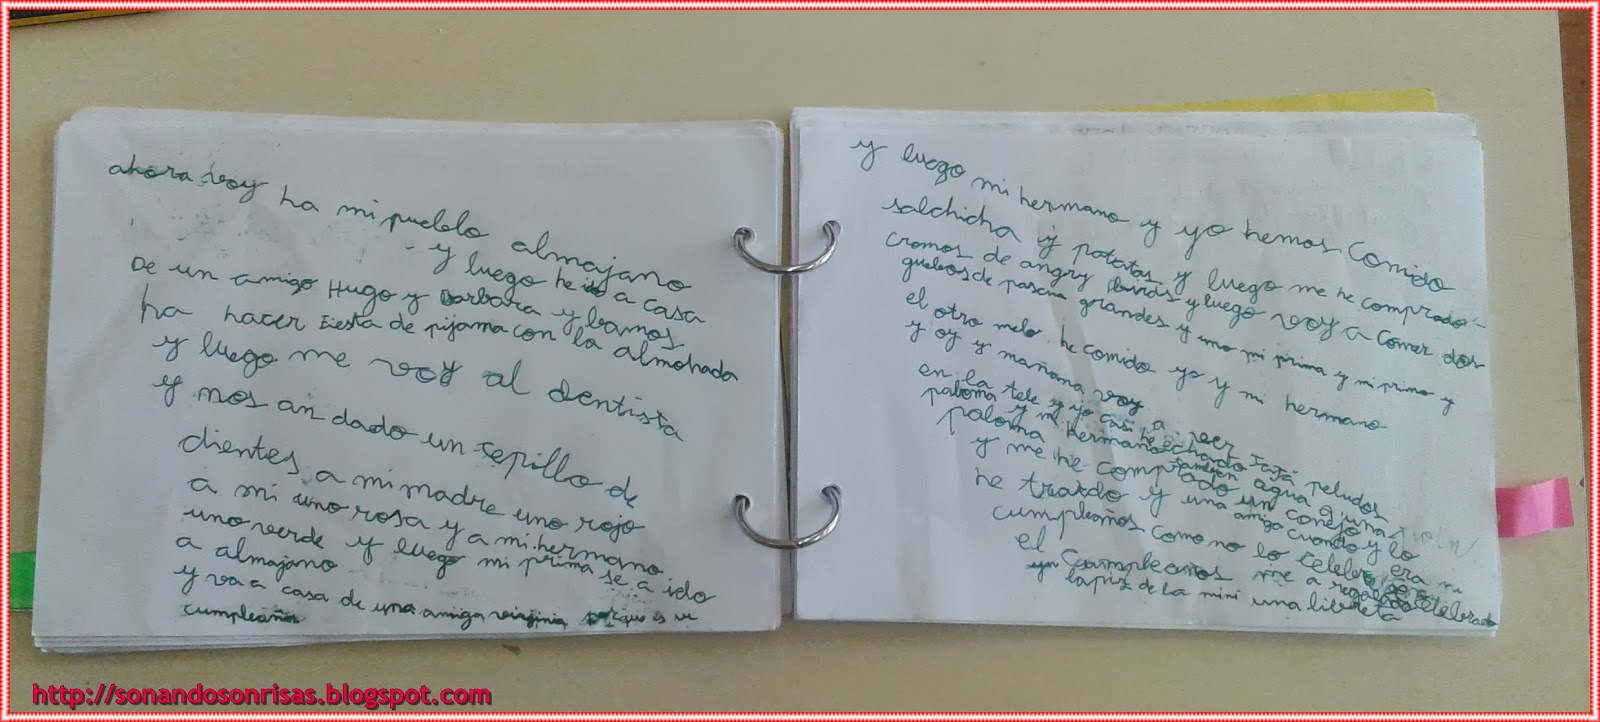 ahora voy ha mi pueblo almajano
y luego he ido a casa
De un amigo Hugo y barbara y bamos
ha hacer fiesta de pijama con la almohada
y luego me voy al dentista
y nos an dado un cepillo de
dientes a mi madre uno rojo
a mi uno rosa y a mi hermano
uno verde y luego mi prima se a ido
a almajano
y va a casa de una amiga virginia porque es su
cumpleaños
y luego mi hermano y yo hemos comido
salchicha y patatas y luego me he comprado
cromos de angry birds y luego voy a comer dos
guebos de pascua grandes y uno mi prima y mi primo y
el otro melo he comido yo y mi hermano
y oy y mañana voy a ver
en la tele y yo casi he echado peludos
paloma y mi hermano tambien agua
paloma
y me he comprado un conejo
he traido y una amiga cuando y lo
cumpleaños como no lo celebre era mi
el cumpleaños me a celebrado
un lapiz de la mini una libreta
http://sonandosonrisas.blogspot.com